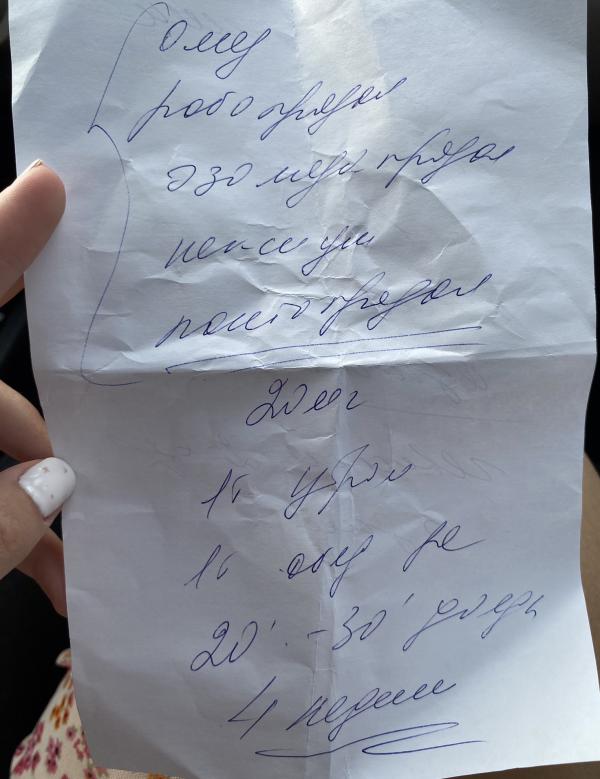 Омез
рабопразол
эзомепразол
нексиум
пантопразол
20 мг
1т утром
1т
20' - 30' до еды
4 недели